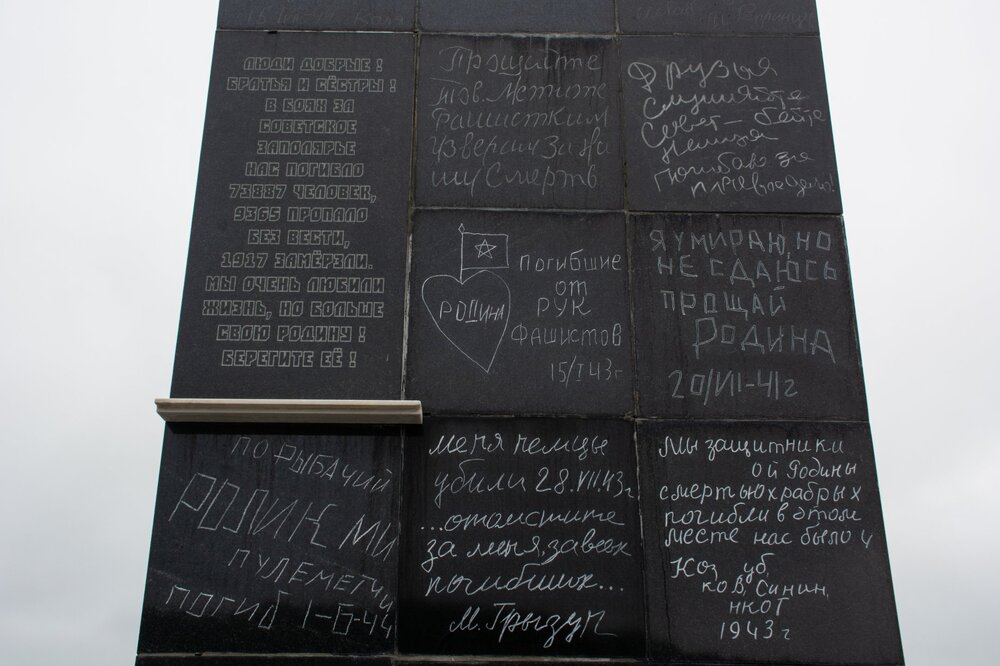 ЛЮДИ ДОБРЫЕ !
БРАТЬЯ И СЁСТРЫ !
В БОЯХ ЗА
СОВЕТСКОЕ
ЗАПОЛЯРЬЕ
НАС ПОГИБЛО
73887 ЧЕЛОВЕК,
9365 ПРОПАЛО
БЕЗ ВЕСТИ,
1917 ЗАМЁРЗЛИ.
МЫ ОЧЕНЬ ЛЮБИЛИ
ЖИЗНЬ, НО БОЛЬШЕ
СВОЮ РОДИНУ !
БЕРЕГИТЕ ЕЁ !
Прощайте
тов. Мстите
фашистким
Изверги За на
шу Смерть
Друзья
Слушяйте
Совет – бейте
Немца
Погибаю за
РОДИНА
ПОГИБШИЕ
ОТ
РУК
ФАШИСТОВ
15/I 43 г
Я УМИРАЮ, НО
НЕ СДАЮСЬ
ПРОЩАЙ
РОДИНА
20/VII-41 г
П О РЫБАЧИЙ
РОДИК МИ
ПУЛЕМЕТЧИ
ПОГИБ 1-6-44
меня немцы
убили 28.VII.43 г
...отомстите
за меня, за всех
погибших...
М. Грызун
Мы защитники
ой Родины
смертью храбрых
погибли в этом
месте нас было 4
Коз уб,
ков, Синин,
нкот
1943 г